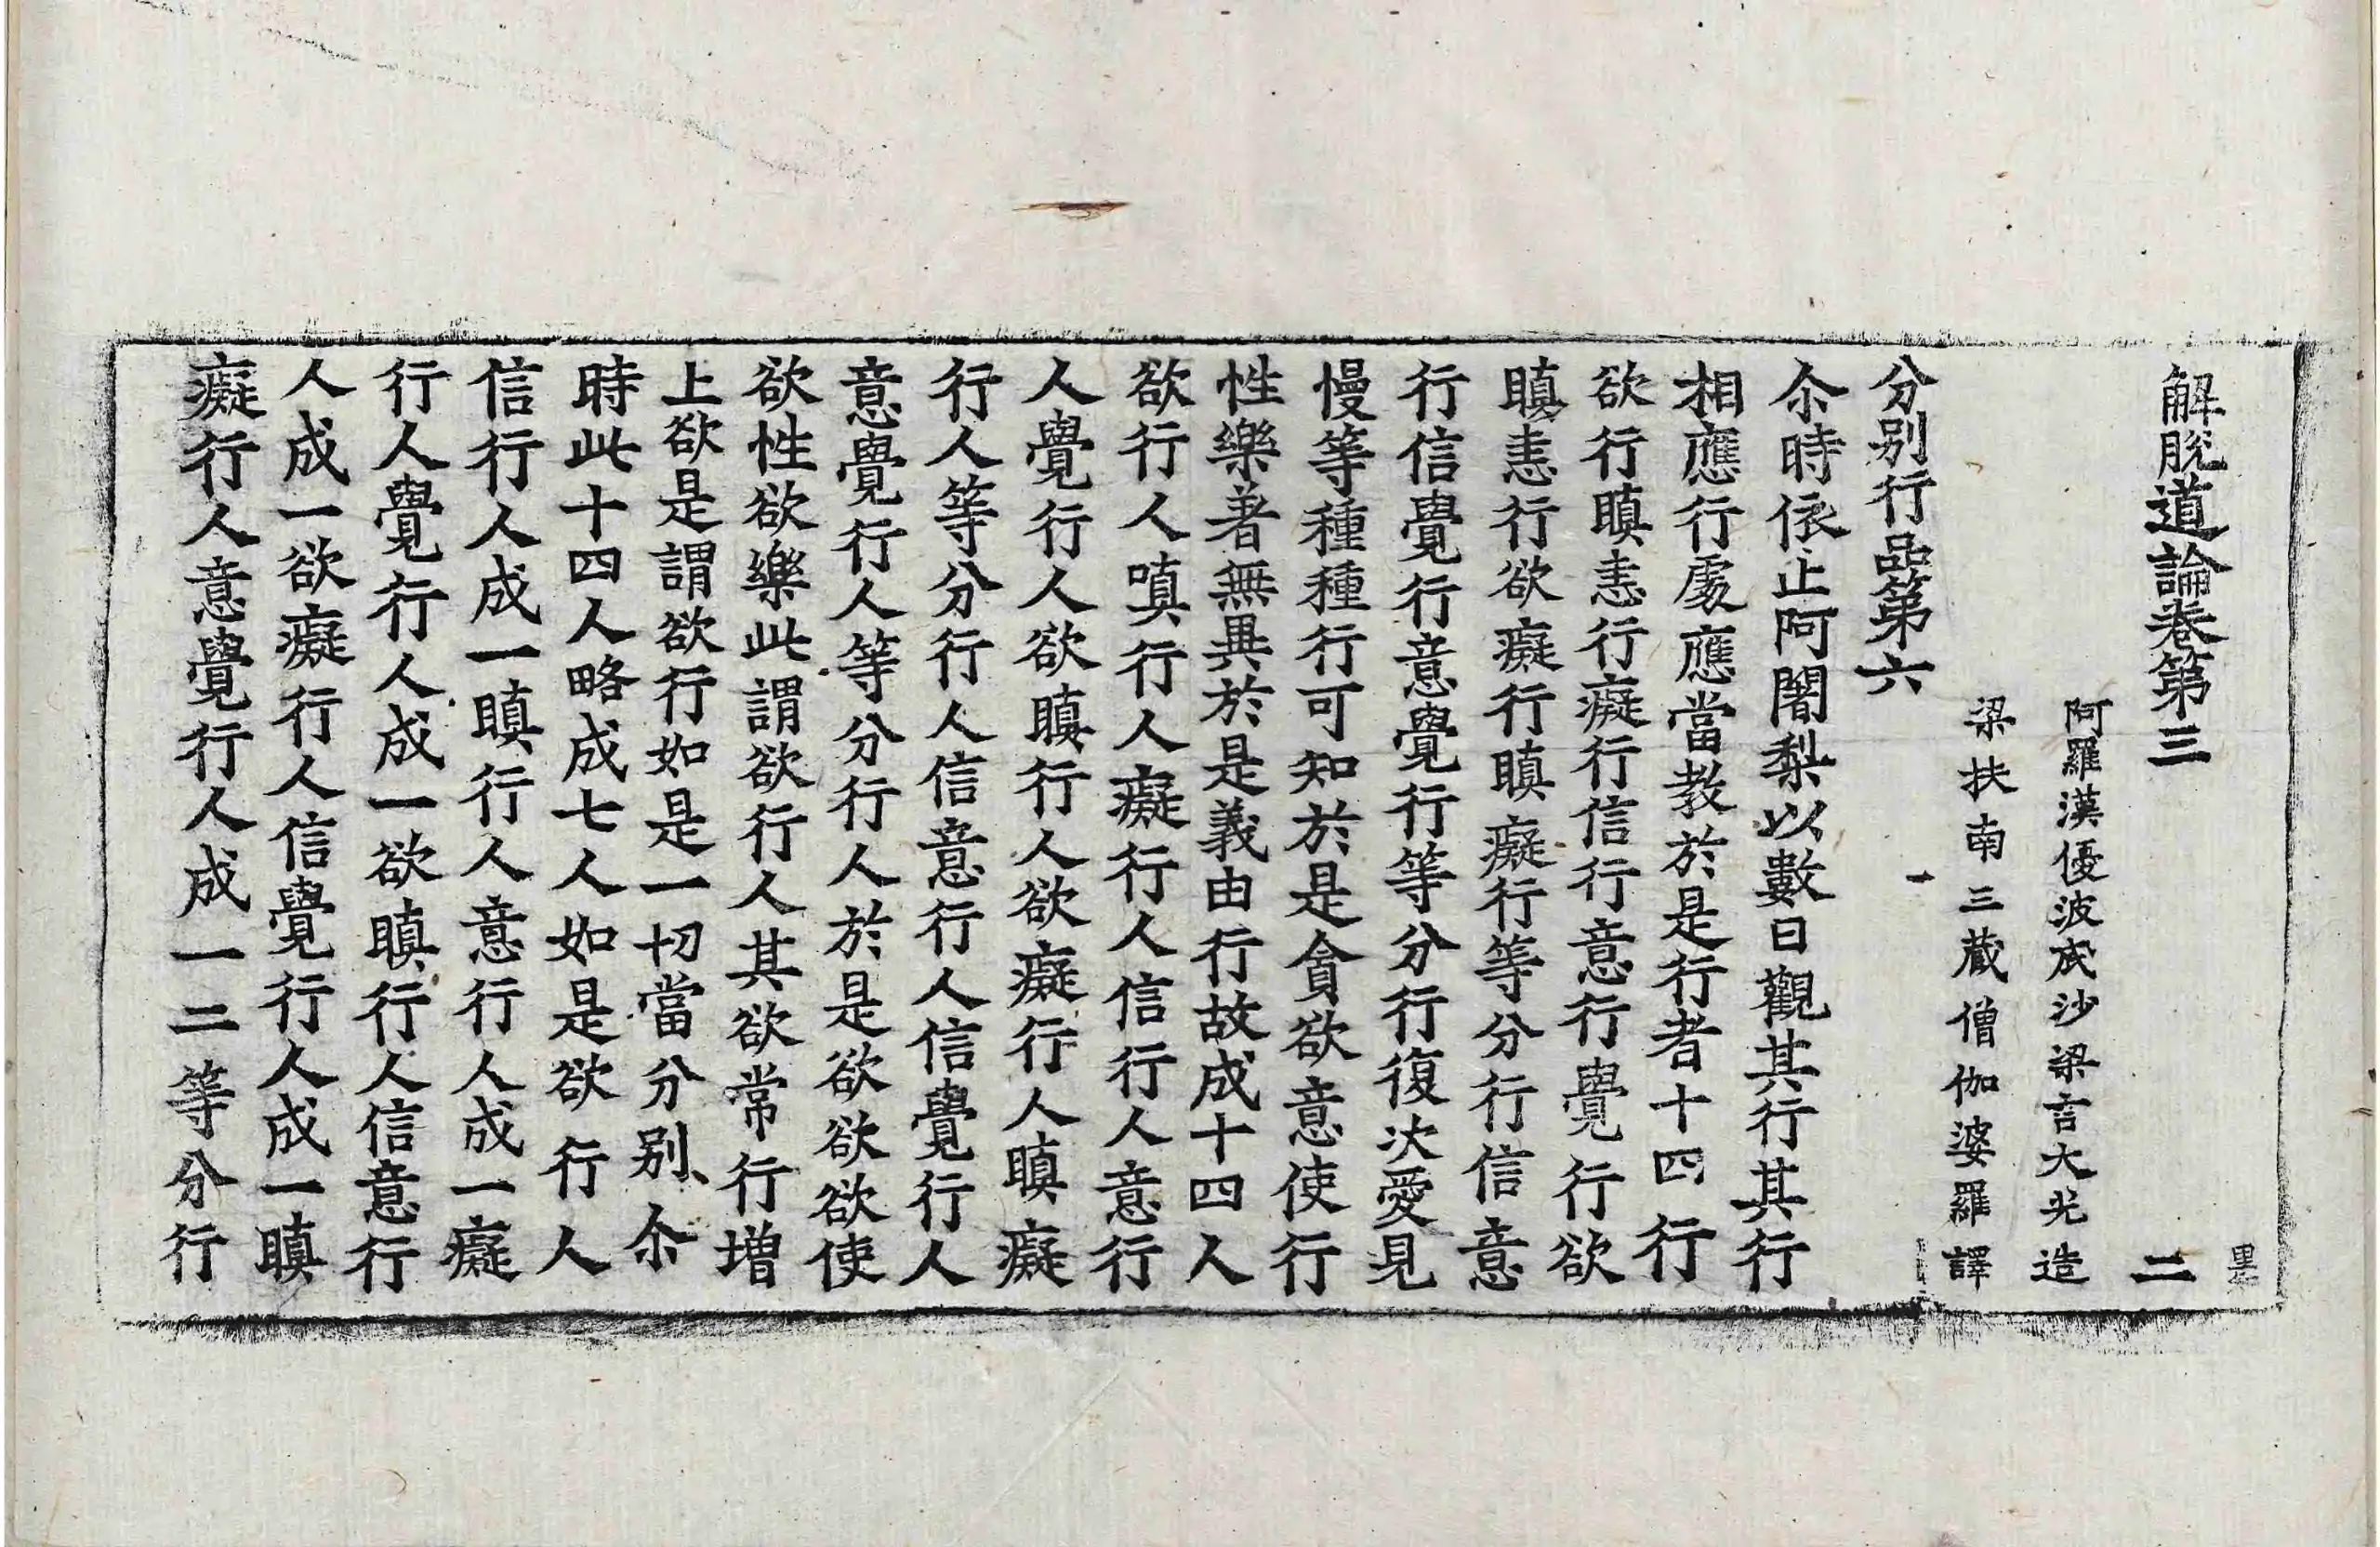 解脫道論卷第三 二 墨
阿羅漢優波底沙梁言大光造
梁扶南三藏僧伽婆羅譯
分別行品第六
尒時依止阿闍梨以數日觀其行其行
相應行處應當教於是行者十四行
欲行瞋恚行癡行信行意行覺行欲
瞋恚行欲癡行瞋癡行等分行信意
行信覺行意覺行等分行復次愛見
慢等種種行可知於是貪欲意使行
性樂著無異於是義由行故成十四人
欲行人嗔行人癡行人信行人意行
人覺行人欲瞋行人欲癡行人瞋癡
行人等分行人信意行人信覺行人
意覺行人等分行人於是欲欲欲使
欲性欲樂此謂欲行人其欲常行增
上欲是謂欲行如是一切當分別尒
時此十四人略成七人如是欲行人
信行人成一瞋行人意行人成一癡
行人覺行人成一欲瞋行人信意行
人成一欲癡行人信覺行人成一瞋
癡行人意覺行人成一二等分行